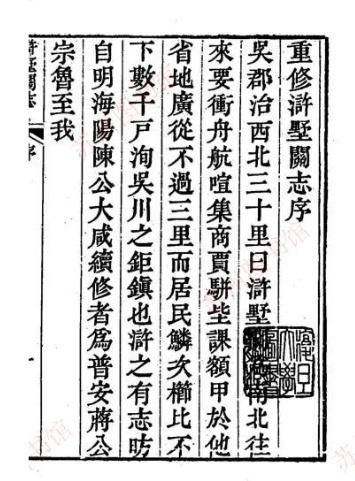 重修滸墅關志序
吳郡治西北三十里曰滸墅南北往
來要衝舟航喧集商賈駢坒課額甲於他
省地廣從不過三里而居民鱗次櫛比不
下數千戶洵吳川之鉅鎮也滸之有志昉
自明海陽陳公大咸續修者爲普安蔣公
宗魯至我
滸墅關志
序
一